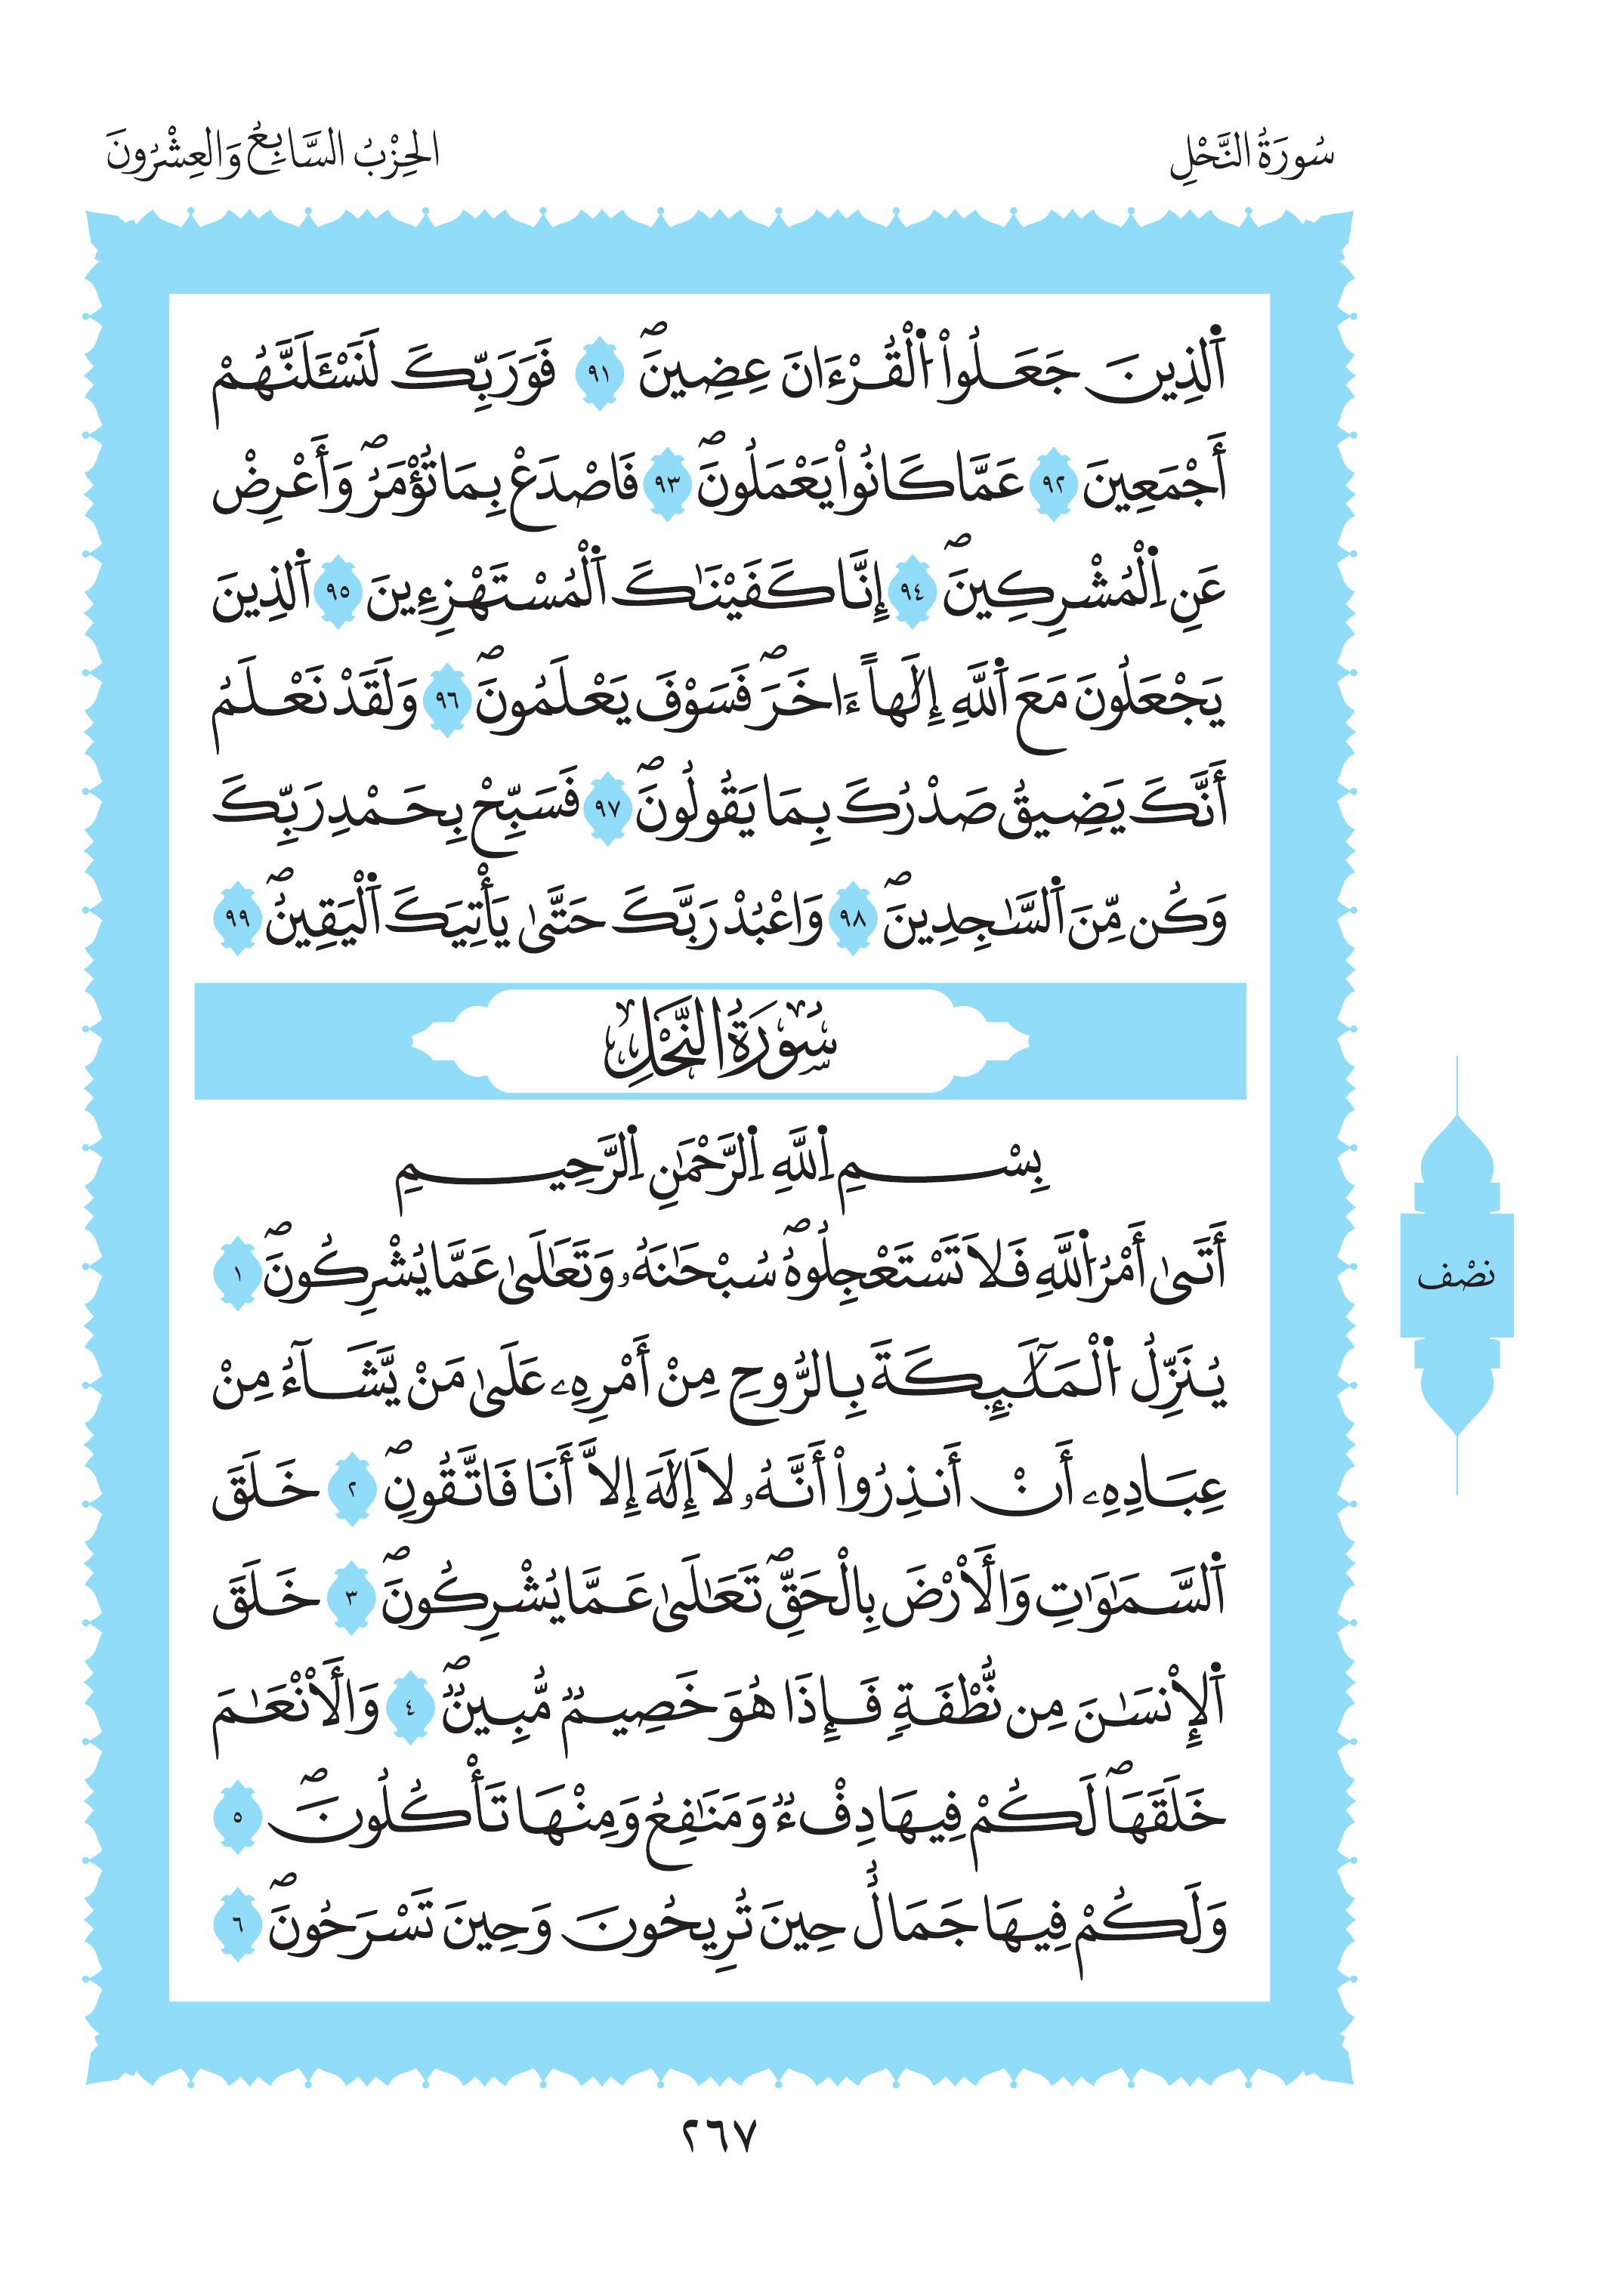 سُورَةُ النَّحْلِ
الحِزْبُ السَّابِعُ وَالعِشْرُونَ
اَ۬لذِينَ جَعَلُواْ اُ۬لْقُرْءَانَ عِضِينَۖ ٩١ فَوَرَبِّكَ لَنَسْـَٔلَنَّهُمْ
أَجْمَعِينَ ٩٢ عَمَّا كَانُواْ يَعْمَلُونَۖ ٩٣ فَاصْدَعْ بِمَا تُؤْمَرُۖ وَأَعْرِضْ
عَنِ اِ۬لْمُشْرِكِينَۖ ٩٤ إِنَّا كَفَيْنَٰكَ اَ۬لْمُسْتَهْزِءِينَ ٩٥ اَ۬لذِينَ
يَجْعَلُونَ مَعَ اَ۬للَّهِ إِلَٰهاً ءَاخَرَۖ فَسَوْفَ يَعْلَمُونَۖ ٩٦ وَلَقَدْ نَعْلَمُ
أَنَّكَ يَضِيقُ صَدْرُكَ بِمَا يَقُولُونَۖ ٩٧ فَسَبِّحْ بِحَمْدِ رَبِّكَ
وَكُن مِّنَ اَ۬لسَّٰجِدِينَۖ ٩٨ وَاعْبُدْ رَبَّكَ حَتَّىٰ يَأْتِيَكَ اَ۬لْيَقِينُۖ ٩٩
سُورَةُ النَّحْلِ
بِسْمِ اِ۬للَّهِ اِ۬لرَّحْمَٰنِ اِ۬لرَّحِيمِ
أَتَىٰ أَمْرُ اُ۬للَّهِ فَلَا تَسْتَعْجِلُوهُۖ سُبْحَٰنَهُۥ وَتَعَٰلَىٰ عَمَّا يُشْرِكُونَۖ ١
نصْف
يُنَزِّلُ اُ۬لْمَلَٰٓئِكَةَ بِالرُّوحِ مِنْ أَمْرِهِۦ عَلَىٰ مَنْ يَّشَآءُ مِنْ
عِبَادِهِۦ أَنْ أَنذِرُواْ أَنَّهُۥ لَا إِلَٰهَ إِلَّا أَنَا فَاتَّقُونِۖ ٢ خَلَقَ
اَ۬لسَّمَٰوَٰتِ وَالْأَرْضَ بِالْحَقِّۖ تَعَٰلَىٰ عَمَّا يُشْرِكُونَۖ ٣ خَلَقَ
اَ۬لْإِنسَٰنَ مِن نُّطْفَةٍ فَإِذَا هُوَ خَصِيمٌ مُّبِينٌۖ ٤ وَالْأَنْعَٰمَ
خَلَقَهَاۖ لَكُمْ فِيهَا دِفْءٌ وَمَنَٰفِعُ وَمِنْهَا تَأْكُلُونَۖ ٥
وَلَكُمْ فِيهَا جَمَالٌ حِينَ تُرِيحُونَ وَحِينَ تَسْرَحُونَۖ ٦
٢٦٧